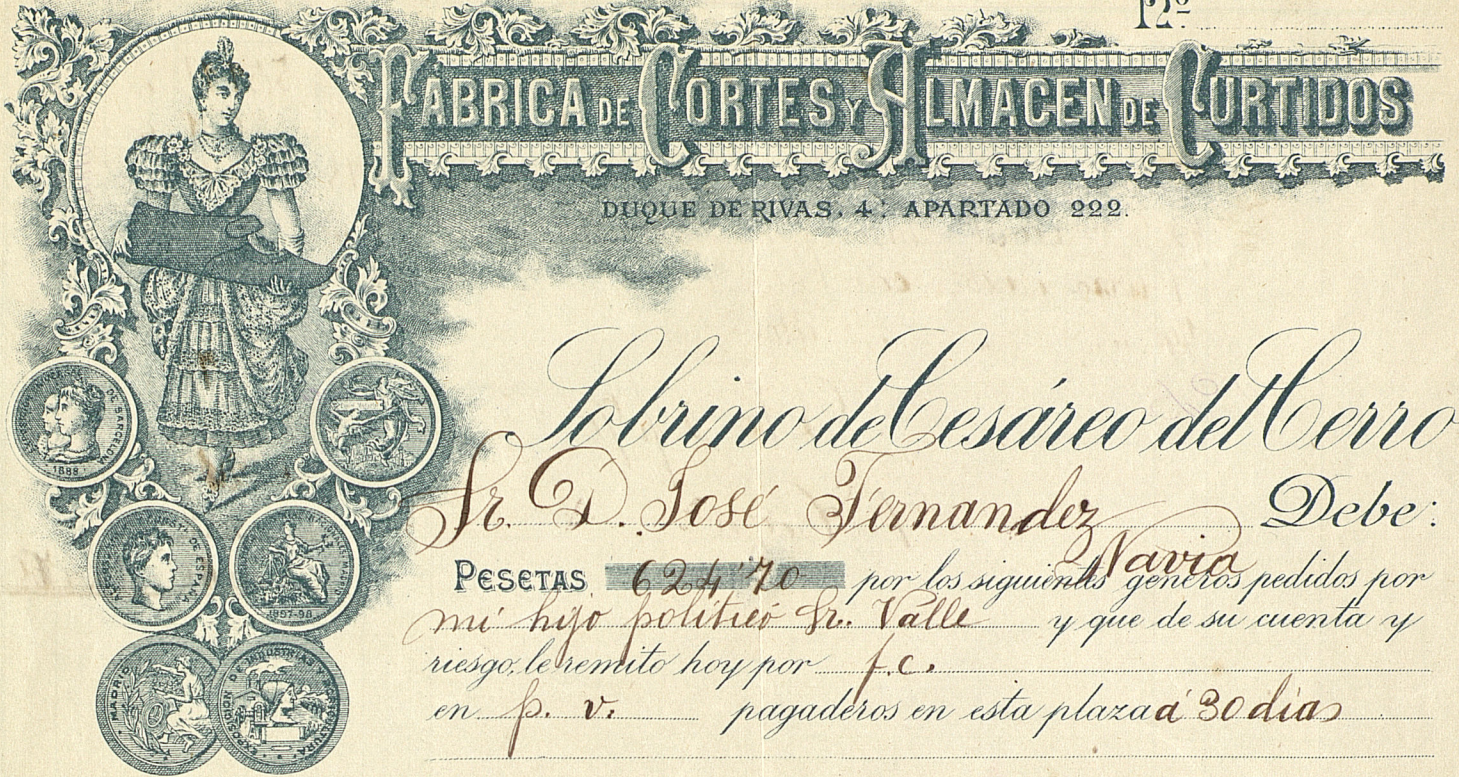 12º
FÁBRICA DE CORTES Y ALMACEN DE CURTIDOS
DUQUE DE RIVAS, 4. APARTADO 222.
Sobrino de Cesáreo del Cerro
Sr. D. José Fernandez Debe:
Navia
PESETAS 624'70 por los siguientes géneros pedidos por
mi hijo politico Sr. Valle y que de su cuenta y
riesgo, le remito hoy por f.c.
en p. v. pagaderos en esta plaza á 30 dias
DE BARCELONA
1888
DE ESPAÑA
1897-98
MADRID
EXPOSICION DE INDUSTRIAS